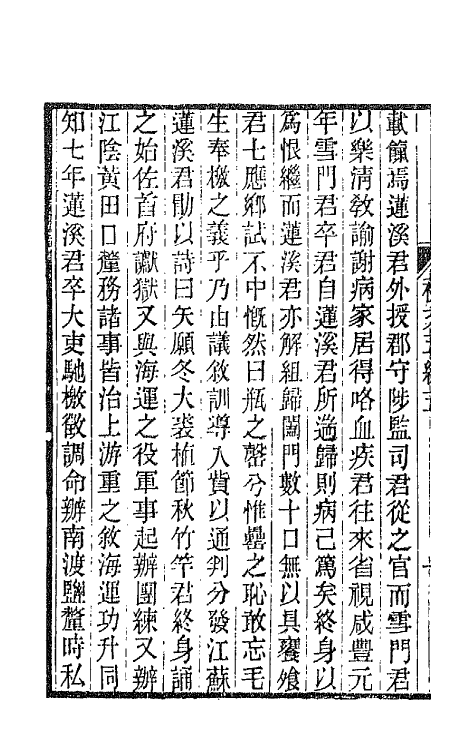 歑餼焉蓮溪君外授郡守陟監司君從之官而雪門君
以樂清敎諭謝病家居得咯血疾君往來省視咸豐元
年雪門君卒君自蓮溪君所邁歸則病已篤矣終身以
爲恨繼而蓮溪君亦解組歸闔門數十口無以具饔飧
君七應鄉試不中慨然曰瓶之罄兮惟罍之恥敢忘毛
生奉檄之義乎乃由議敘訓導入貲以通判分發江蘇
蓮溪君勖以詩曰矢願冬大裘植節秋竹竿君終身誦
之始佐首府讞獄又與海運之役軍事起辦團練又辦
江陰黃田口釐務諸事皆治上游重之敘海運功升同
知七年蓮溪君卒大吏馳檄徵調命辦南渡鹽釐時私